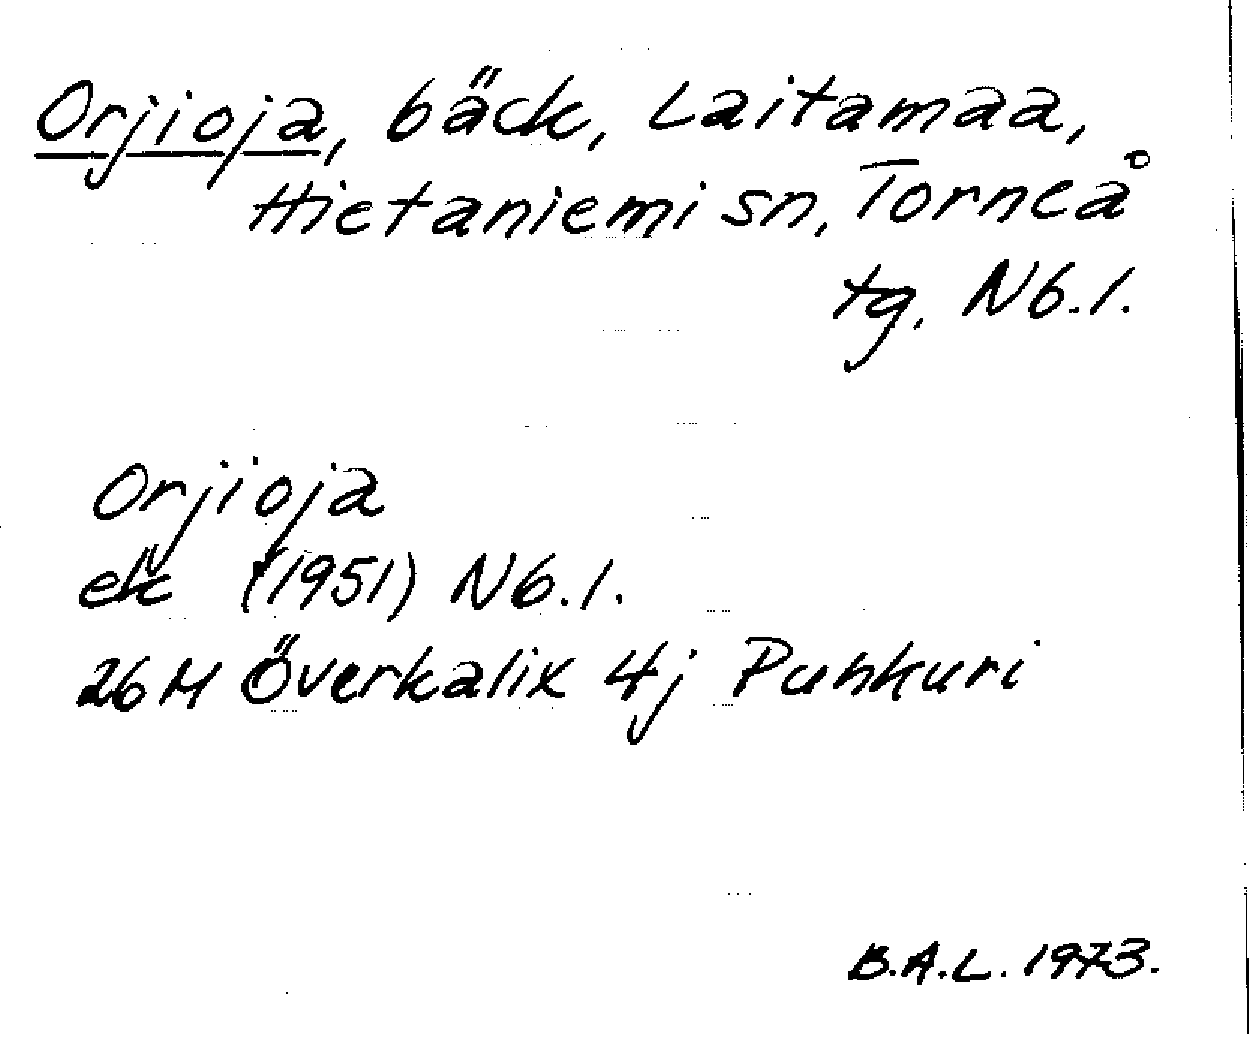 Orjioja, bäck, Laitamaa,
Hietaniemi sn, Torneå
tg. N6.1.
Orjioja
ek (1951) N6.1.
26M Överkalix 4j Puhkuri
B.A.L. 1973.